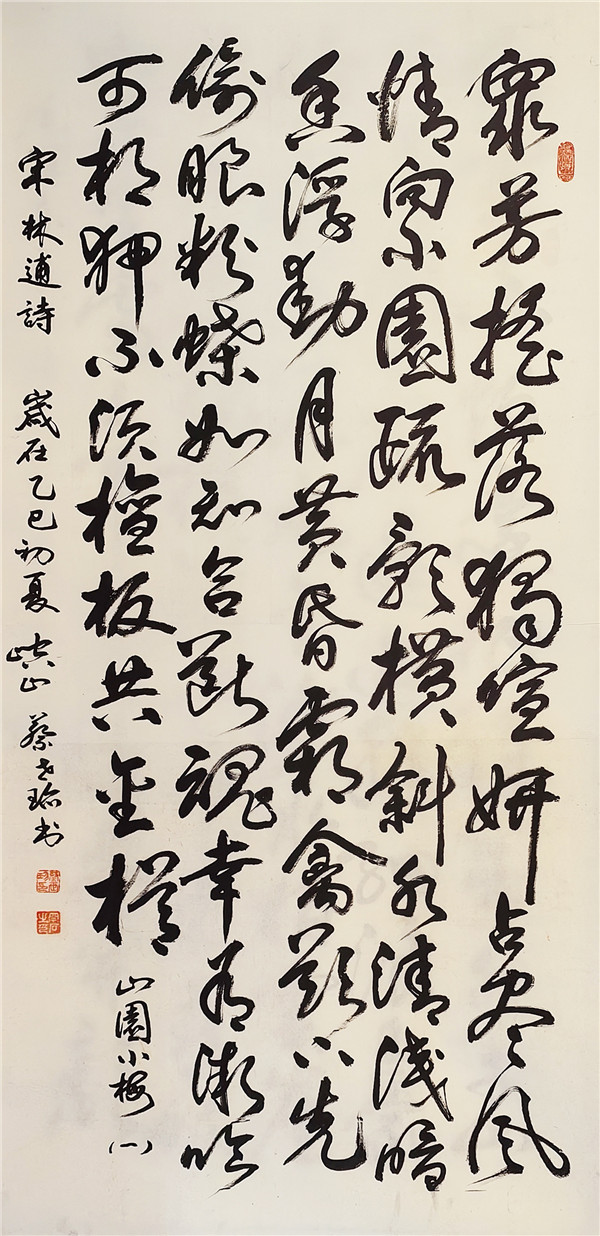 眾芳搖落獨喧妍占盡風
情向小園疏影橫斜水清淺暗
香浮動月黃昏霜禽欲下先
偷眼粉蝶如知合斷魂幸有微吟
可相狎不須檀板共金樽 山園小梅(一)
宋林逋詩 歲在乙巳初夏 山 蔡 书